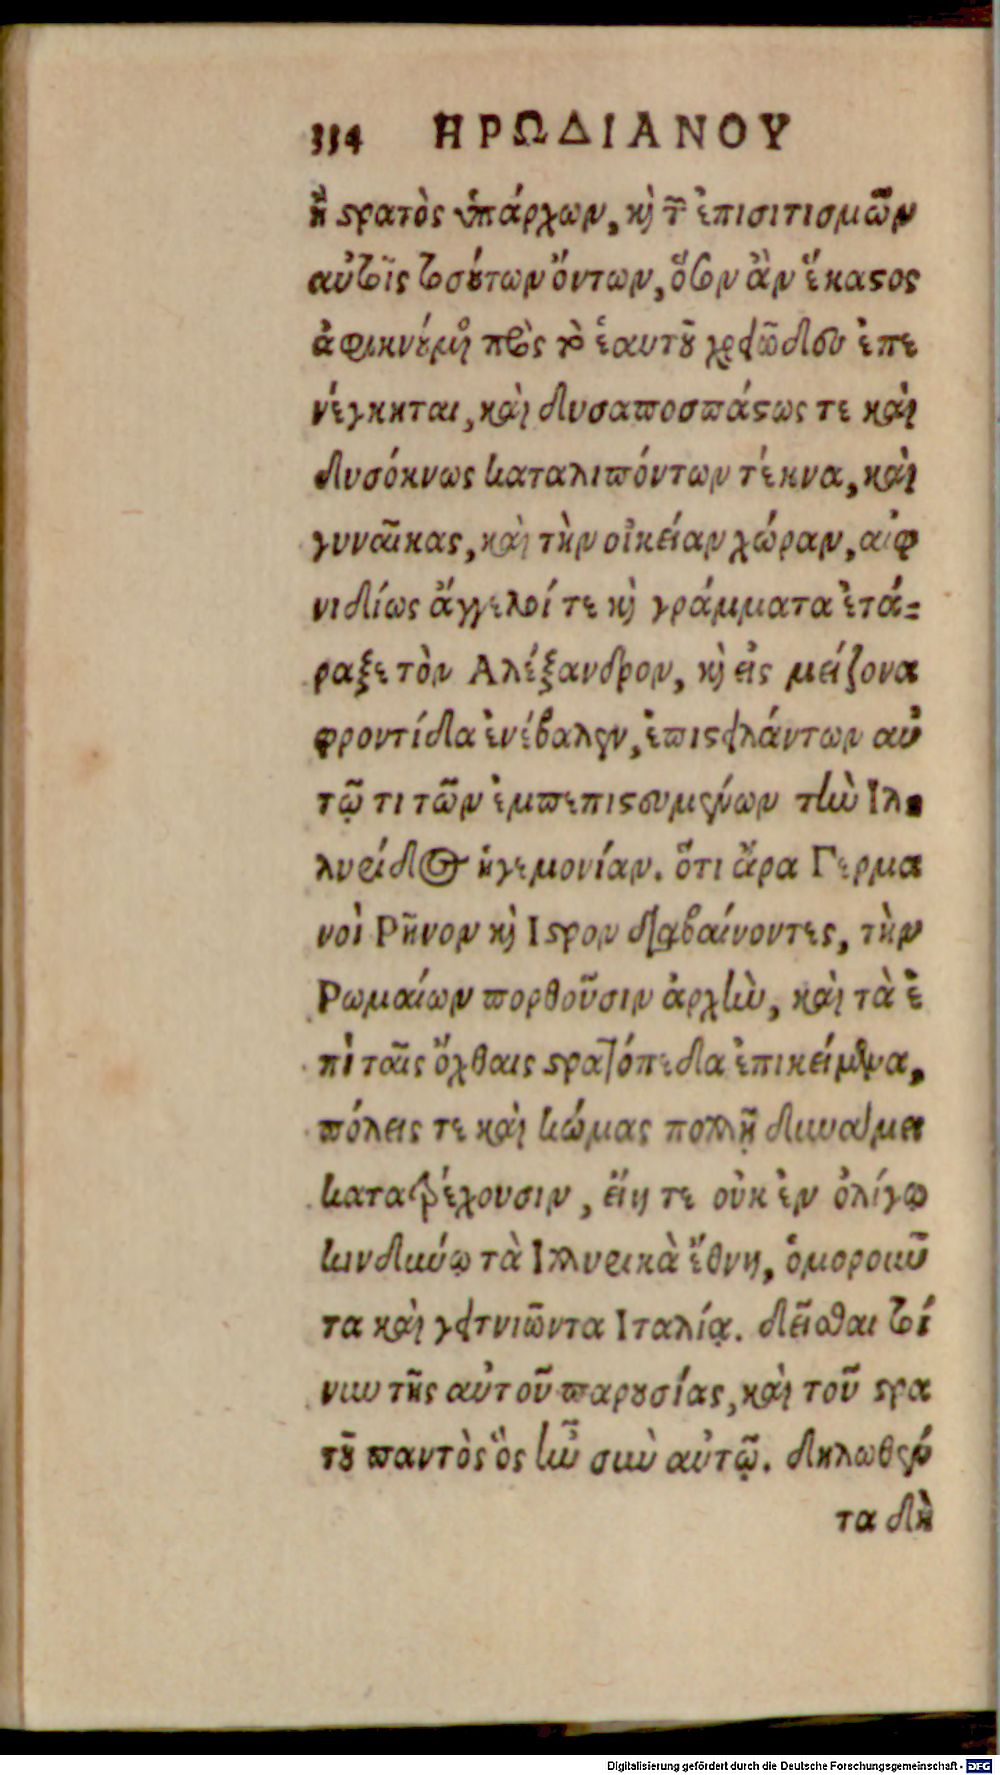 334 ΗΡΩΔΙΑΝΟΥ
ἢ στρατὸς ὑπάρχων, καὶ τῶν ἐπισιτισμῶν
αὐτοῖς τοσούτων ὄντων, ὅσον ἂν ἕκαστος
ἀφικνούμενος πρὸς τὸ ἑαυτοῦ χρειῶδες ἐπε
νέγκηται, καὶ δυσαποσπάστως τε καὶ
δυσόκνως καταλιπόντων τέκνα, καὶ
γυναῖκας, καὶ τὴν οἰκείαν χώραν, αἰφ
νιδίως ἄγγελοί τε καὶ γράμματα ἐτά=
ραξε τὸν Αλέξανδρον, καὶ εἰς μείζονα
φροντίδα ἐνέβαλεν, ἐπιστειλάντων αὐ
τῷ τι τῶν ἐμπεπιστευμένων τὴν Ιλ
λυρίδος ἡγεμονίαν. ὅτι ἄρα Γερμα
νοὶ Ρῆνον καὶ Ιστρον διαβαίνοντες, τὴν
Ρωμαίων πορθοῦσιν ἀρχὴν, καὶ τὰ ἐ
πὶ ταῖς ὄχθαις στρατόπεδα ἐπικείμενα,
πόλεις τε καὶ κώμας πολλῇ δυνάμει
κατατρέχουσιν, εἴη τε οὐκ ἐν ὀλίγῳ
κινδύνῳ τὰ Ιλλυρικὰ ἔθνη, ὁμοροῦν
τα καὶ γειτνιῶντα Ιταλίᾳ. δεῖσθαι τοί
νυν τῆς αὐτοῦ παρουσίας, καὶ τοῦ στρα
τοῦ παντὸς ὃς ἦν σὺν αὐτῷ. δηλωθέν
τα δὴ
Digitalisierung gefördert durch die Deutsche Forschungsgemeinschaft - DFG